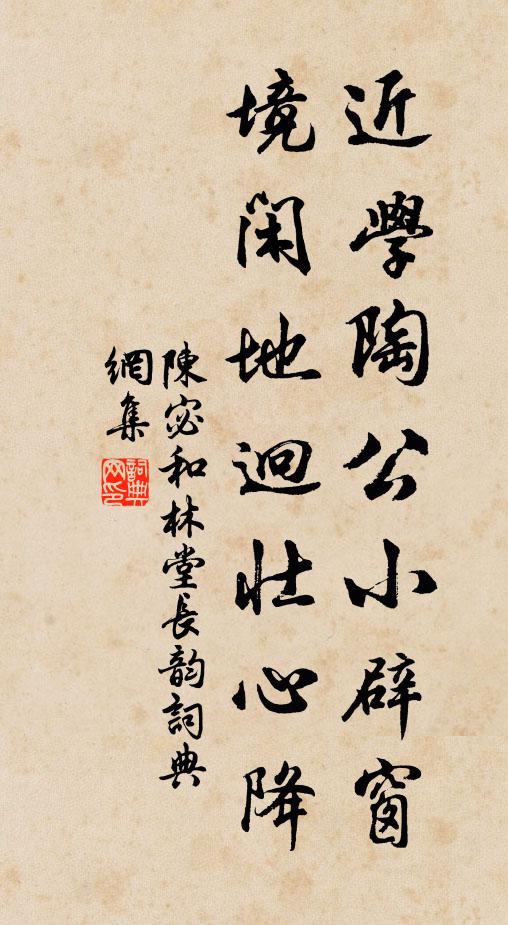 近學陶公小辟窗
境閑地迥壯心降
陳宓和林堂長韵詞典
網集
詞典
网印